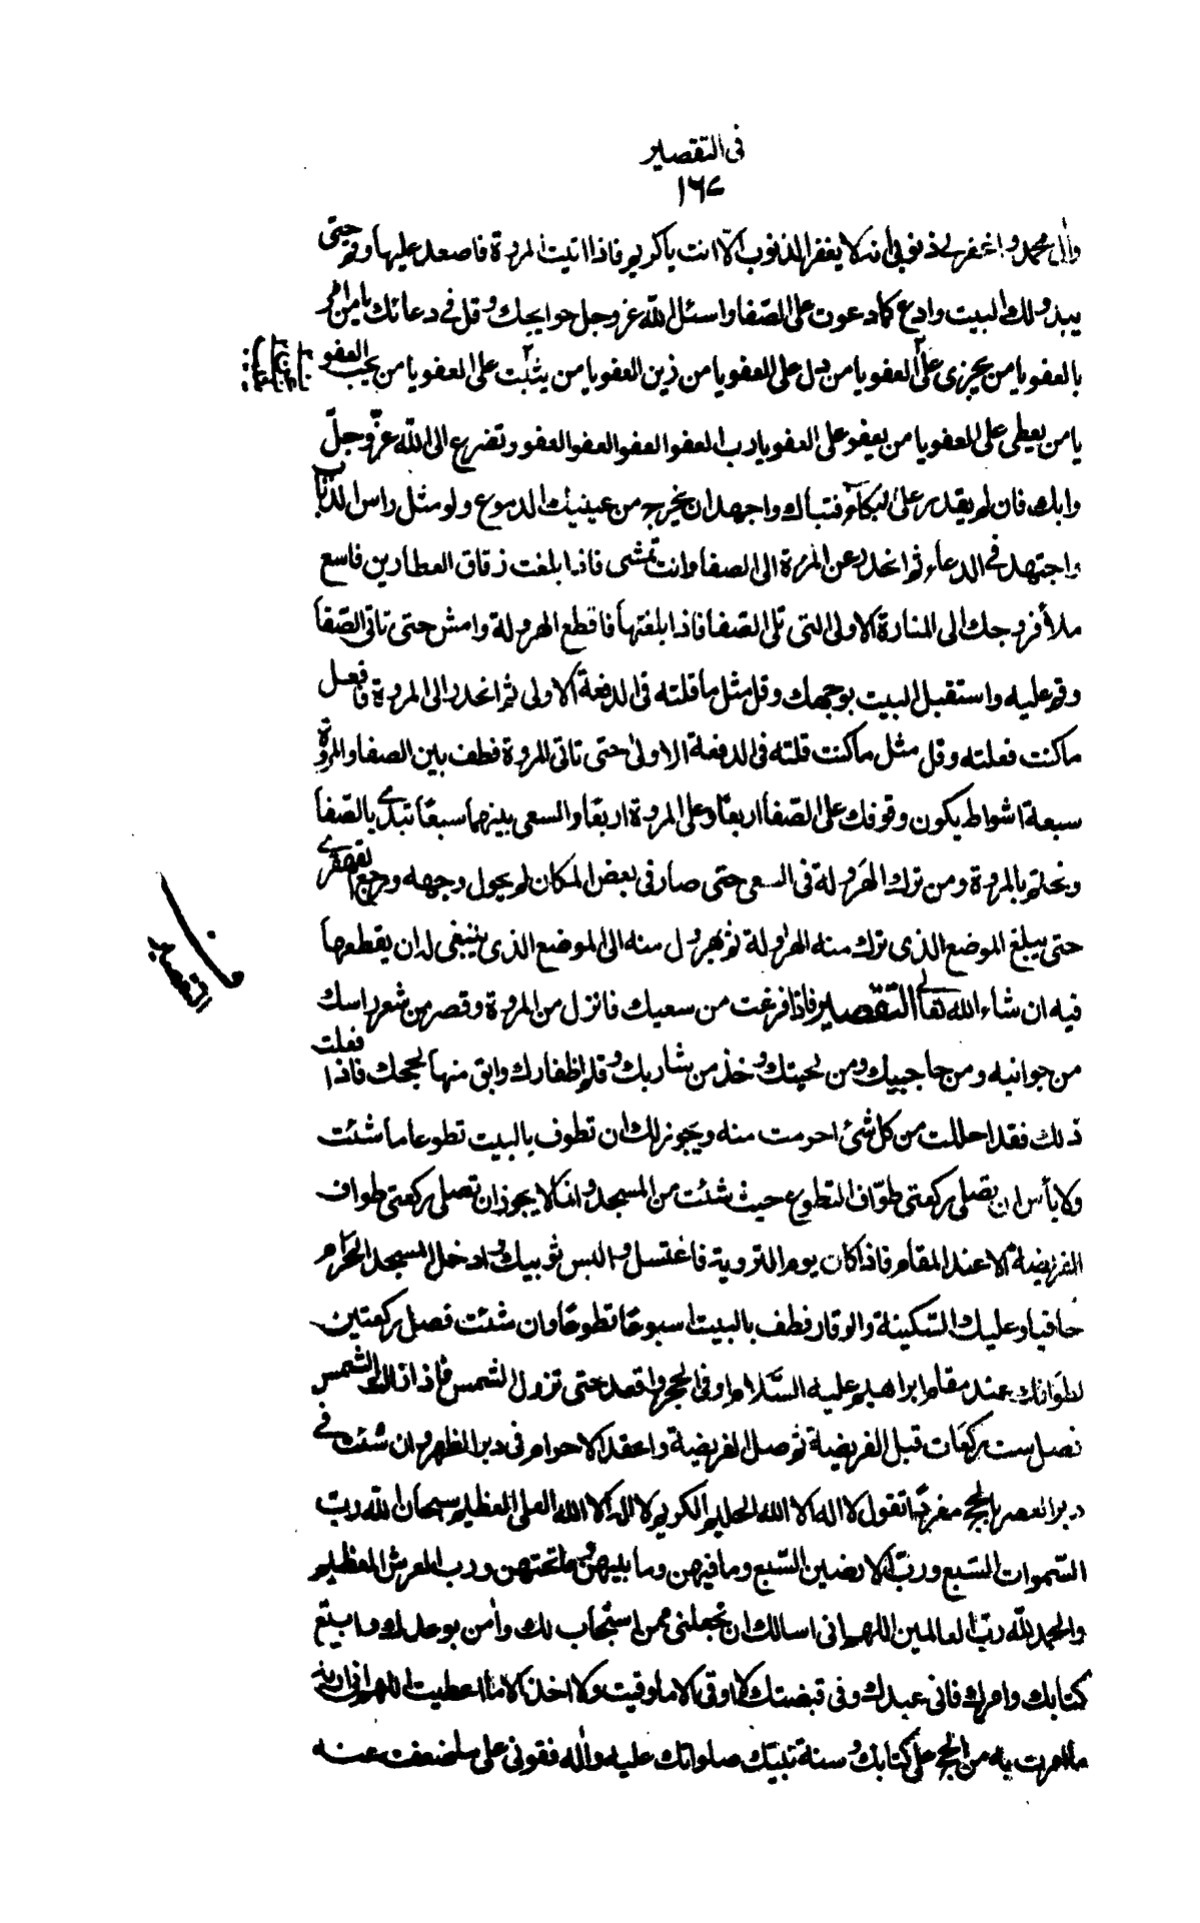 فى التقصير
١٦٧
وآل محمد واغفر لى ذنوبى انه لا يغفر الذنوب الا انت يا كريم فاذا اتيت المروة فاصعد عليها وقم حتى
يبدو لك البيت وادع كما دعوت على الصفا واسئل الله عز وجل حوايجك وقل فى دعائك يا من امر
بالعفو يا من يجزى على العفو يا من دل على العفو يا من زين العفو يا من يثبت على العفو يا من يحب العفو
يا من يعطى على العفو يا من يعفو على العفو يا رب العفو العفو العفو العفو وتضرع الى الله عز وجل
وابك فان لم يقدر على البكآء فتباك واجهد ان يخرج من عينيك الدموع ولو مثل راس الذباب
واجتهد فى الدعاء ثم انحدر عن المروة الى الصفا وانت تمشى فاذا بلغت زقاق العطارين فاسع
ملأ فروجك الى المنارة الاولى التى تلى الصفا فاذا بلغتها فاقطع الهرولة وامش حتى تاتى الصفا
وقم عليه واستقبل البيت بوجهك وقل مثل ما قلته فى الدفعة الاولى ثم انحدر الى المروة فافعل
ما كنت فعلته وقل مثل ما كنت قلته فى الدفعة الاولى حتى تاتى المروة فطف بين الصفا والمروة
سبعة اشواط يكون وقوفك على الصفا اربعا وعلى المروة اربعا والسعى بينهما سبعا تبدء بالصفا
وتختم بالمروة ومن ترك الهرولة فى السعى حتى صار فى بعض المكان لم يحول وجهه ورجع القهقرى
حتى يبلغ الموضع الذى ترك منه الهرولة ثم يهرول منه الى الموضع الذى ينبغى له ان يقطعها
فيه ان شاء الله تعالى التقصير فاذا فرغت من سعيك فانزل من المروة وقصر من شعر راسك
من جوانبه ومن حاجبيك ومن لحيتك وخذ من شاربك وقلم اظفارك وابق منها لحجك فاذا فعلت
ذلك فقد احللت من كل شئ احرمت منه ويجوز لك ان تطوف بالبيت تطوعا ما شئت
ولا بأس ان تصلى ركعتى طواف التطوع حيث شئت من المسجد وانما لا يجوز ان تصلى ركعتى طواف
الفريضة الا عند المقام فاذا كان يوم التروية فاغتسل والبس ثوبيك وادخل المسجد الحرام
حافيا وعليك السكينة والوقار فطف بالبيت اسبوعا تطوعا وان شئت فصل ركعتين
لطوافك عند مقام ابراهيم عليه السلام او فى الحجر واقعد حتى تزول الشمس فاذا زالت الشمس
فصل ست ركعات قبل الفريضة ثم صل الفريضة واعقد الاحرام فى دبر الظهر وان شئت فى
دبر العصر بالحج مفردا تقول لا اله الا الله الحليم الكريم لا اله الا الله العلى العظيم سبحان الله رب
السموات السبع ورب الارضين السبع وما فيهن وما بينهن وما تحتهن ورب العرش العظيم
والحمد لله رب العالمين اللهم انى اسالك ان تجعلنى ممن استجاب لك وآمن بوعدك واتبع
كتابك وامرك فانى عبدك وفى قبضتك لا اوقى الا ما وقيت ولا اخذ الا ما اعطيت اللهم انى اريد
ما امرت به من الحج على كتابك وسنة نبيك صلواتك عليه وآله فقونى على ما ضعفت عنه
فى
التقصير